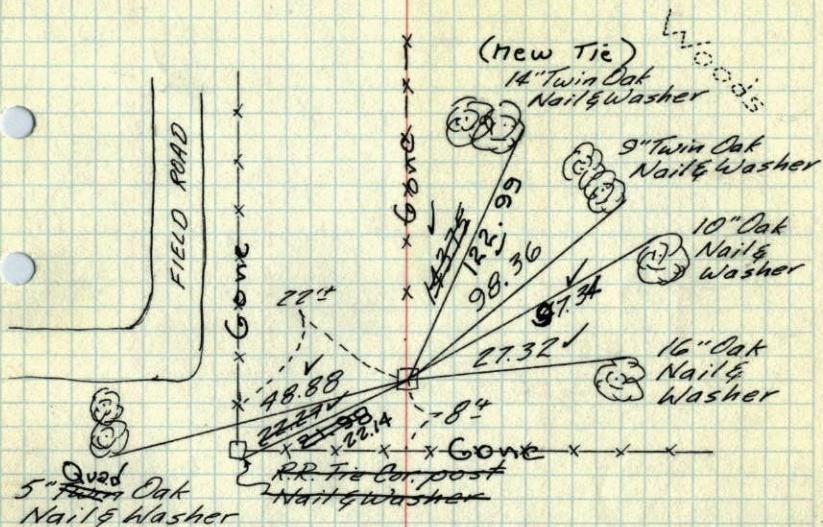 Woods
(New Tie)
14" Twin Oak
Nail & Washer
9" Twin Oak
Nail & Washer
10" Oak
Nail &
Washer
16" Oak
Nail &
Washer
FIELD ROAD
Gone
Gone
Gone
143.75
122.99
98.36
97.34
27.32
22'±
48.88
22.27
21.98
22.14
8'±
R.R. Tie Cor. post
Nail & Washer
Quad
5" Twin Oak
Nail & Washer